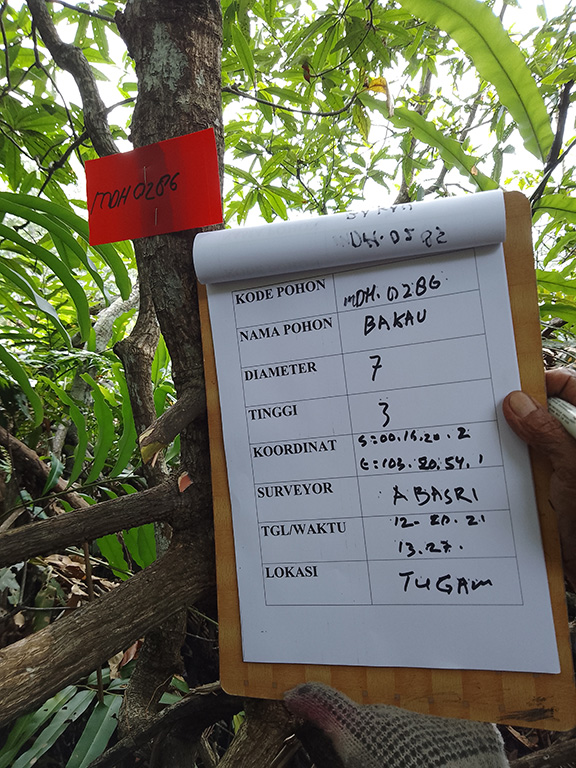 MDH 0286
MDH.0582
KODE POHON MDH.0286
NAMA POHON BAKAU
DIAMETER 7
TINGGI 3
KOORDINAT S:00.14.20.2
E:103.20.54.1
SURVEYOR ABASRI
TGL/WAKTU 12.20.21
13.27.
LOKASI TUGAM